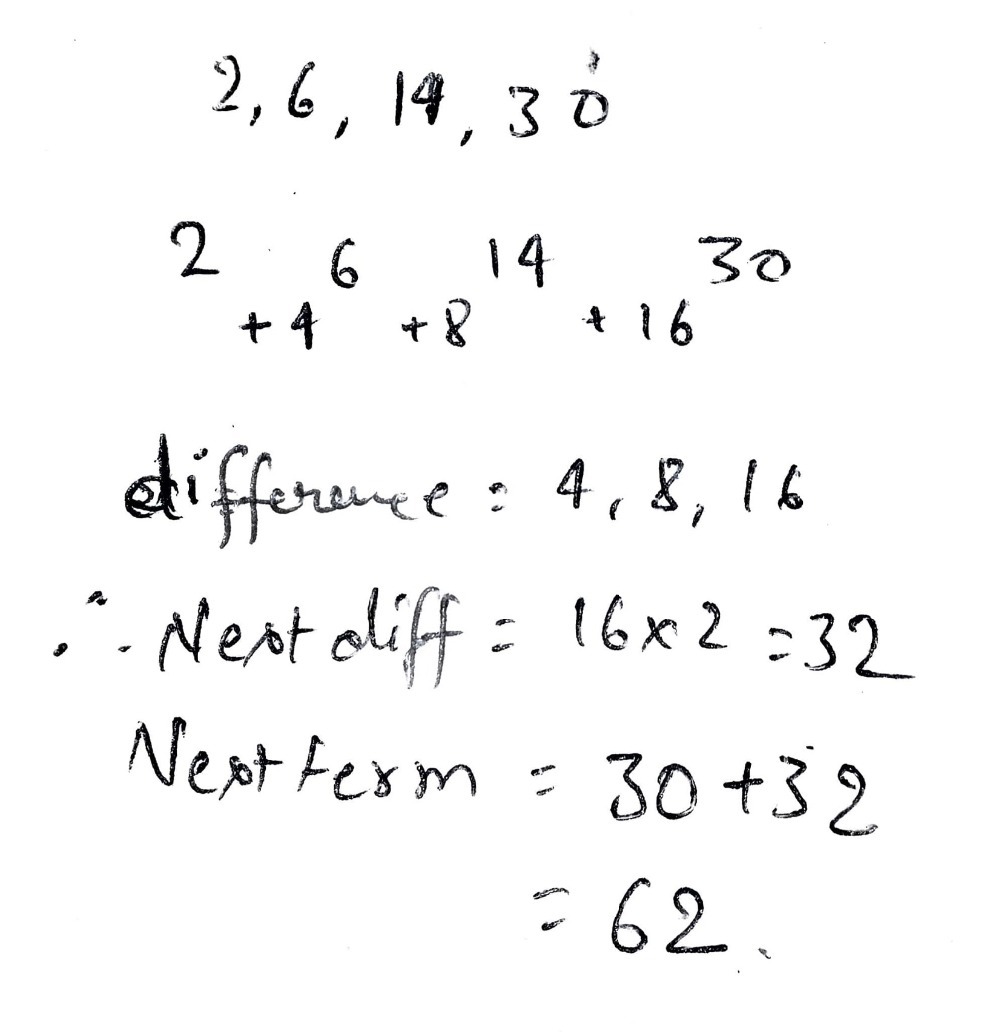 2, 6, 14, 30
2 6 14 30
+4 +8 +16
difference = 4, 8, 16
∴ Next diff = 16 x 2 = 32
Next term = 30 + 32
= 62.